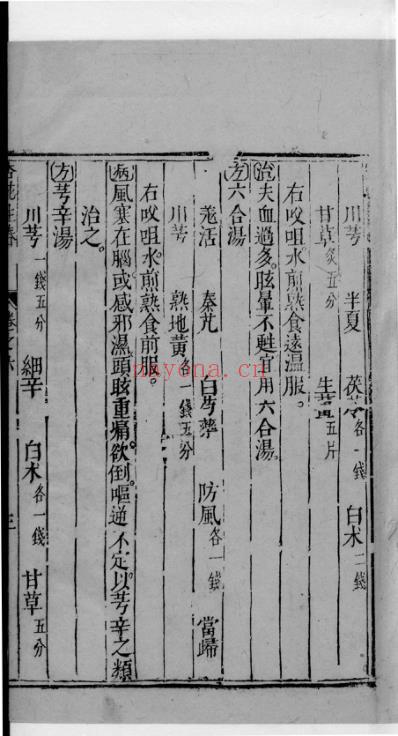 川芎 半夏 茯苓各一錢 白朮二錢
甘草炙五分 生薑五片
右㕮咀水煎熟食遠温服。
治失血過多。眩暈不甦宜用六合湯。
方六合湯
羗活 秦艽 白芍藥 防風各一錢 當歸
川芎 熟地黄各一錢五分
右㕮咀水。煎熟食前服。
病風寒在腦。或感邪濕。頭眩重痛。欲倒。嘔逆不定。以芎辛之類
治之。
方芎辛湯
川芎一錢五分 細辛 白朮各一錢 甘草五分
卷之六 三
nayona.cn